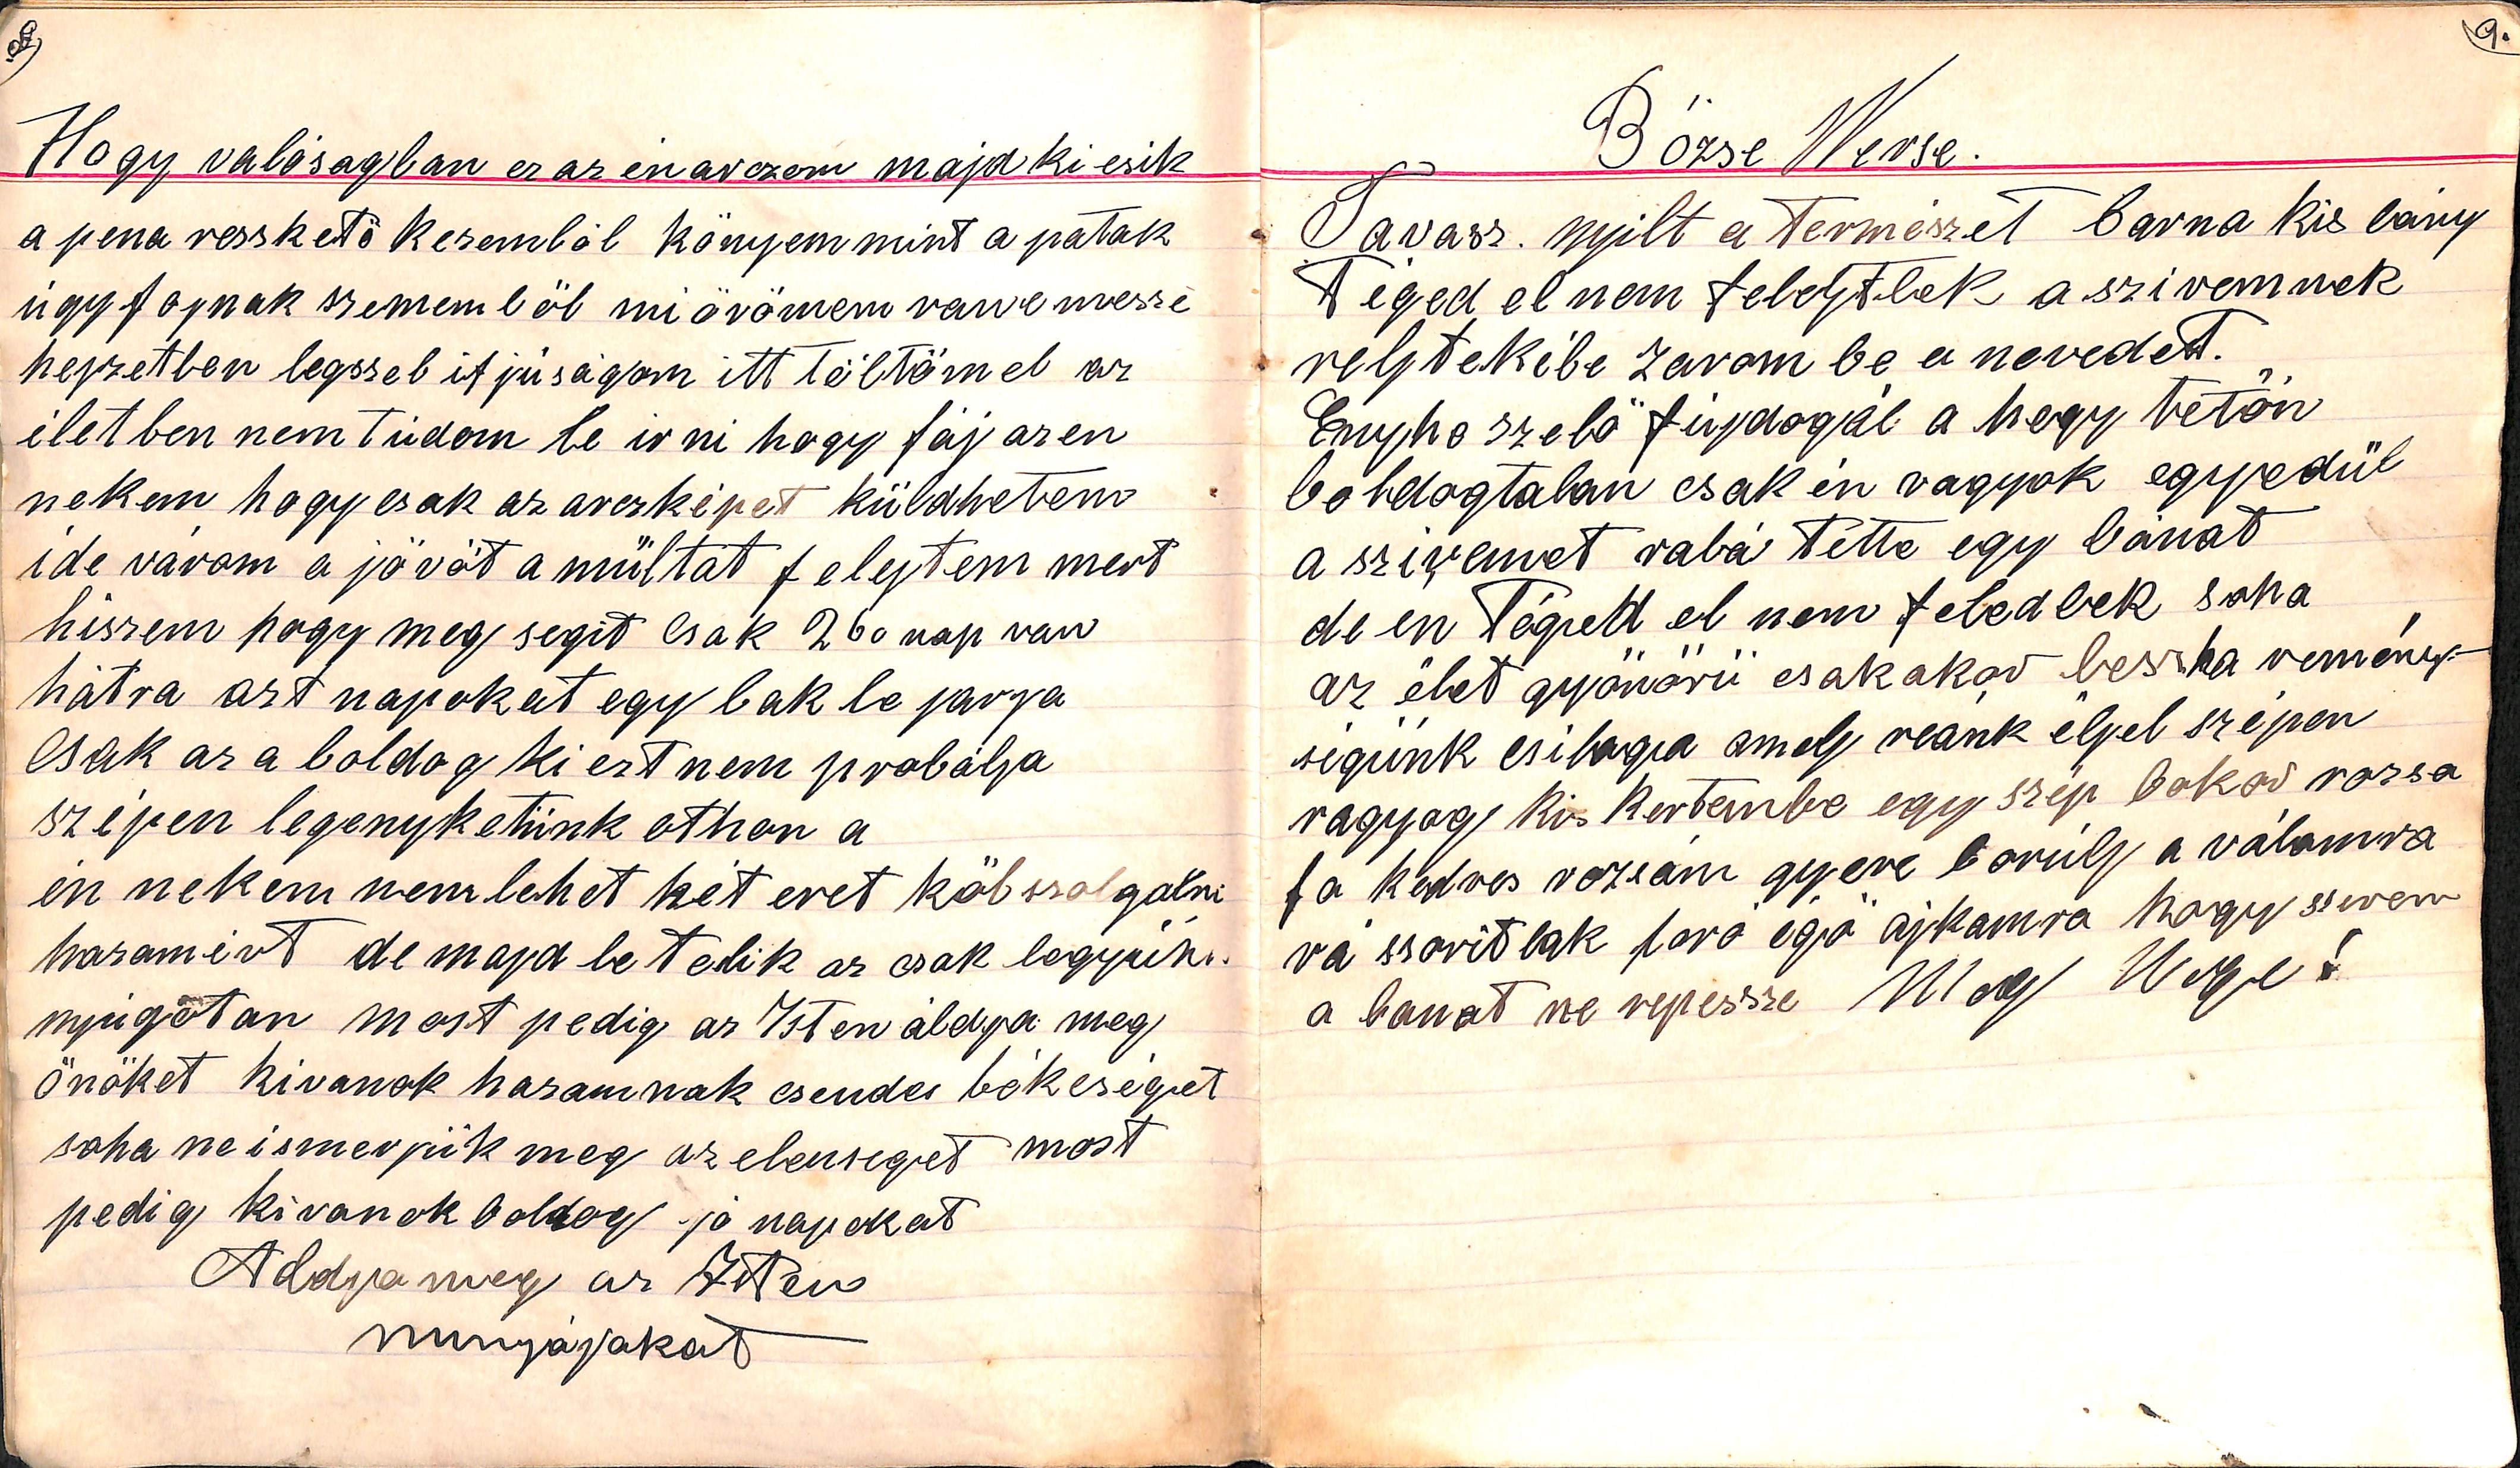 8.
Hogy valósagban ez az én arczom majd ki esik
a pena resskető kezemböl könyem mint a patak
úgy fojnak szemembőb mi örömem van e messze
hejzetben legszeb ifjúságom itt töltöm el az
életben nem tudom le irni hogy fáj az en
nekem hogy csak az arczképet küldhetem
ide várom a jövöt a múltat felejtem mert
hiszem hogy meg segit Csak 260 nap van
hátra azt napokat egy bak le jarja
Csak az a boldog ki ezt nem probálja
szépen legenyketünk othon a
én nekem nem lehet hét evet köl szolgálni
hazamért de majd le telik az csak legyünk
nyugotan most pedig az Isten áldja meg
önöket kivanok hazamnak csendes békeséget
soha ne ismerjük meg az elenseget most
pedig kivanok boldog jó napokat
Aldja meg az Isten
nunyájakat
9.
Bözse Verse.
Tavasz. nyilt a természet barna kis lány
Téged el nem felejtlek a szivemnek
rejtekébe zárom be a nevedet.
Enyhe szelő fújdogál a hegy tetőn
boldogtalan csak én vagyok egyedül
a szivemet rabá tette egy bánat
de én Téged el nem feledlek soha
az élet gyönörü csak akor lessha remény-
ségünk csilaga amely reánk éljel szépen
ragyog kis kertembe egy szép bokor rozsa
fa kedves rozsám gyere borúlj a válamra
rá szoritlak foró égö ajkamra hogy szivem
a banat ne repessze Meg Vége!